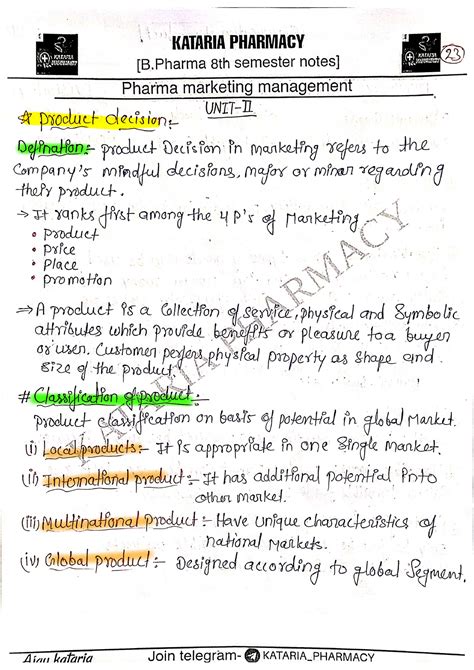 KATARIA PHARMACY
[B.Pharma 8th semester notes]
23
Pharma marketing management
UNIT-II
Product decision:-
Defination:- product Decision in marketing refers to the
Company's mindful decisions, major or minor regarding
their product.
→ It ranks first among the 4 P's of Marketing
• Product
• Price
• Place
• promotion
→ A product is a Collection of service, physical and Symbolic
attributes which provide benefits or pleasure to a buyer
or user. Customer perfers physical property as shape and
size of the product.
# Classification of product:-
product classification on basis of potential in global Market.
(i) Local products:- It is appropriate in one Single market.
(ii) International product:- It has additional potential into
other market.
(iii) Multinational product:- Have unique characteristics of
national Markets.
(iv) Global product:- Designed according to global Segment.
KATARIA PHARMACY
Ajay kataria
Join telegram- KATARIA_PHARMACY